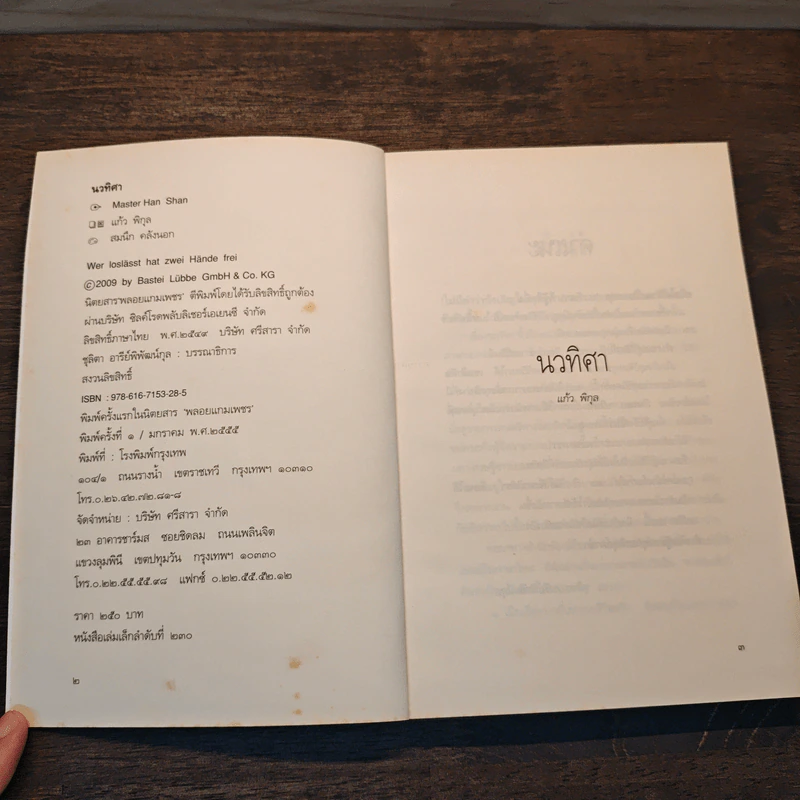 นวทิศา
Master Han Shan
แก้ว พิกุล
สมนึก คลังนอก
Wer loslässt hat zwei Hände frei
©2009 by Bastei Lübbe GmbH & Co. KG
นิตยสาร'พลอยแกมเพชร' ตีพิมพ์โดยได้รับลิขสิทธิ์ถูกต้อง
ผ่านบริษัท ซิลค์โรดพลับลิเชอร์เอเยนซี จำกัด
ลิขสิทธิ์ภาษาไทย พ.ศ.๒๕๔๙ บริษัท ศรีสารา จำกัด
ชุลิตา อารีย์พิพัฒน์กุล : บรรณาธิการ
สงวนลิขสิทธิ์
ISBN : 978-616-7153-28-5
พิมพ์ครั้งแรกในนิตยสาร 'พลอยแกมเพชร'
พิมพ์ครั้งที่ ๑ / มกราคม พ.ศ.๒๕๕๕
พิมพ์ที่ : โรงพิมพ์กรุงเทพ
๑๐๔/๑ ถนนรางน้ำ เขตราชเทวี กรุงเทพฯ ๑๐๓๑๐
โทร.๐.๒๖.๔๒.๗๒.๘๑-๘
จัดจำหน่าย : บริษัท ศรีสารา จำกัด
๒๓ อาคารชาร์มส ซอยชิดลม ถนนเพลินจิต
แขวงลุมพินี เขตปทุมวัน กรุงเทพฯ ๑๐๓๓๐
โทร.๐.๒๒.๕๕.๕๕.๙๘ แฟกซ์ ๐.๒๒.๕๕.๕๒.๑๒
ราคา ๒๕๐ บาท
หนังสือเล่มเล็กลำดับที่ ๒๓๐
๒
นวทิศา
แก้ว พิกุล
๓